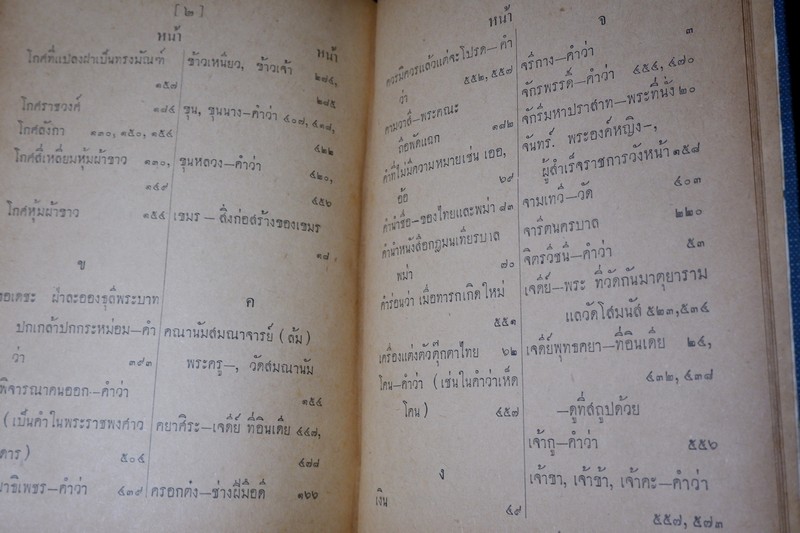 [ ๒ ]
หน้า
โกศที่แปลงฝาเป็นทรงมัณฑ์
๑๕๗
โกศราชวงศ์ ๑๘๔
โกศลังกา ๑๓๐, ๑๕๐, ๑๕๔
โกศสี่เหลี่ยมหุ้มผ้าขาว ๑๓๐,
๑๔๙
โกศหุ้มผ้าขาว ๑๕๔
ข
ขอเดชะ ฝ่าละอองธุลีพระบาท
ปกเกล้าปกกระหม่อม—คำ
ว่า ๓๙๓
พิจารณาคนออก—คำว่า
(เป็นคำในพระราชพงศาว
ดาร) ๕๐๔
—คำว่า ๔๓๙
หน้า
ข้าวเหนียว, ข้าวเจ้า ๒๗๔,
๒๘๕
ขุน, ขุนนาง—คำว่า ๔๐๗, ๔๑๘,
๔๒๒
ขุนหลวง—คำว่า ๔๒๐,
๔๕๖
เขมร — สิ่งก่อสร้างของเขมร
๑๘
ค
คณานัมสมณาจารย์ (ล้ม)
พระครู—, วัดสมณานัม
๑๕๔
คยาศิระ—เจดีย์ ที่อินเดีย ๔๔๗,
๔๗๘
ครอกต๋ง—ช่างฝีมือดี ๑๖๖
หน้า
ควรมิควรแล้วแต่จะโปรด—คำ
ว่า ๕๕๒, ๕๕๗
คามวาสี—พระคณะ
ถือพัดแฉก ๑๘๒
คำที่ไม่มีความหมายเช่น เออ,
อ้อ ๖๙
คำนำชื่อ—ของไทยและพม่า ๘๓
คำนำหนังสือกฎมนเทียรบาล
พม่า ๗๐
คำร่อนว่า เมื่อทารกเกิดใหม่
๕๕๑
เครื่องแต่งตัวตุ๊กตาไทย ๖๒
โคน—คำว่า (เช่นในคำว่าเห็ด
โคน) ๔๕๗
ง
เงิน ๔๙
จ
๓
จรีกาง—คำว่า
๔๕๔, ๔๗๐
จักรพรรดิ์—คำว่า
จักรีมหาปราสาท—พระที่นั่ง ๒๐
จันทร์. พระองค์หญิง—,
ผู้สำเร็จราชการวังหน้า ๑๕๘
จามเทวี—วัด ๔๐๓
จารีตนครบาล ๒๒๐
จิตรวิชนี—คำว่า ๕๓
เจดีย์—พระ ที่วัดกันมาตุยาราม
แลวัดโสมนัส ๕๒๓,๕๓๔
เจดีย์พุทธคยา—ที่อินเดีย ๒๔,
๔๓๒, ๔๓๘
—ดูที่สถูปด้วย
เจ้ากู—คำว่า ๕๕๖
เจ้าขา, เจ้าข้า, เจ้าคะ—คำว่า
๕๕๗, ๕๗๓